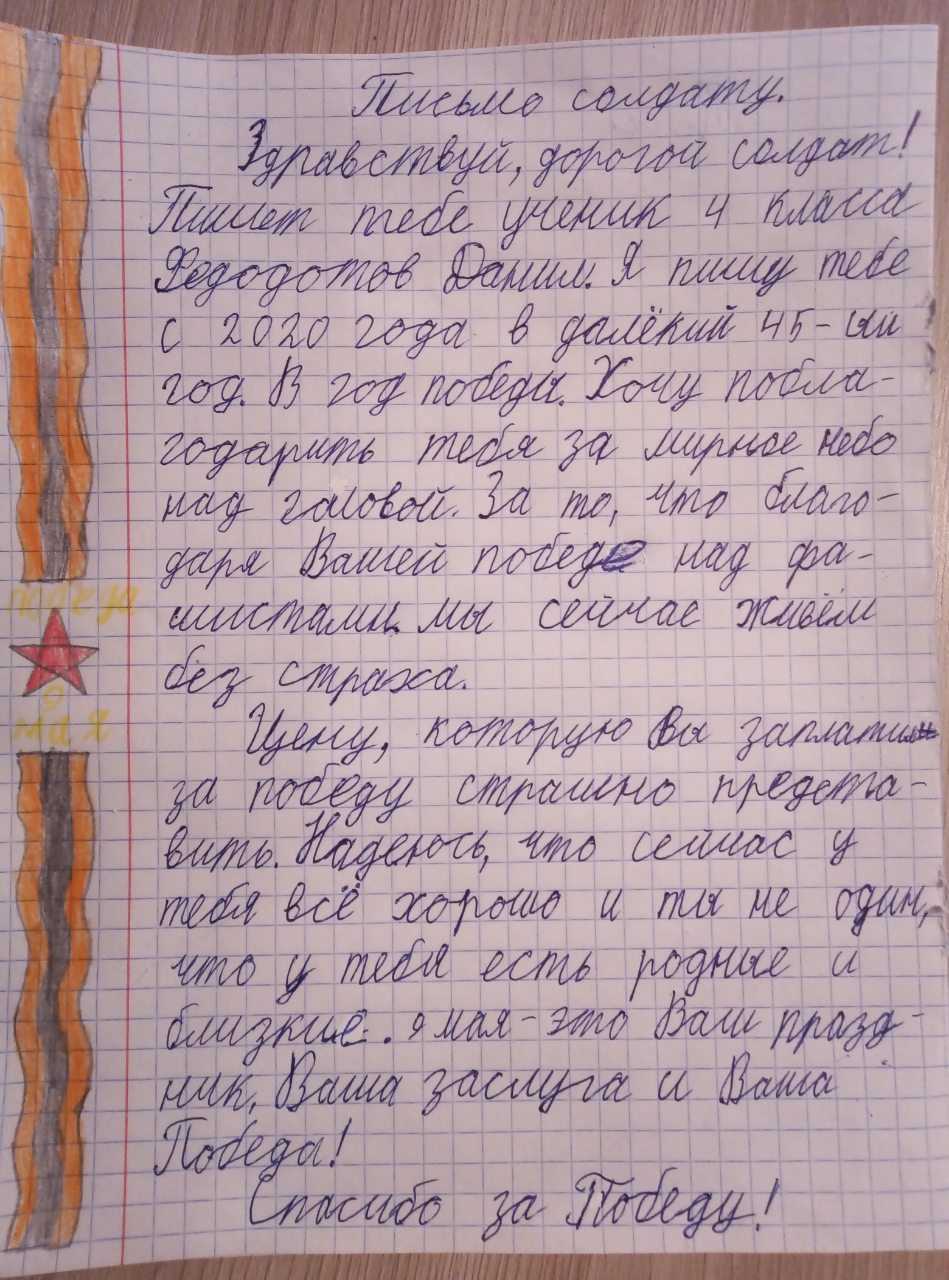 Письмо солдату.
Здравствуй, дорогой солдат!
Пишет тебе ученик 4 класса
Федодотов Данил. Я пишу тебе
с 2020 года в далёкий 45-ый
год. В год победы. Хочу побла-
годарить тебя за мирное небо
над головой. За то, что благо-
даря Вашей победе над фа-
шистами мы сейчас живём
без страха.
победа
9
мая
Цену, которую Вы заплатили
за победу страшно предста-
вить. Надеюсь, что сейчас у
тебя всё хорошо и ты не один,
что у тебя есть родные и
близкие. 9 мая - это Ваш празд-
ник, Ваша заслуга и Ваша
Победа!
Спасибо за Победу!